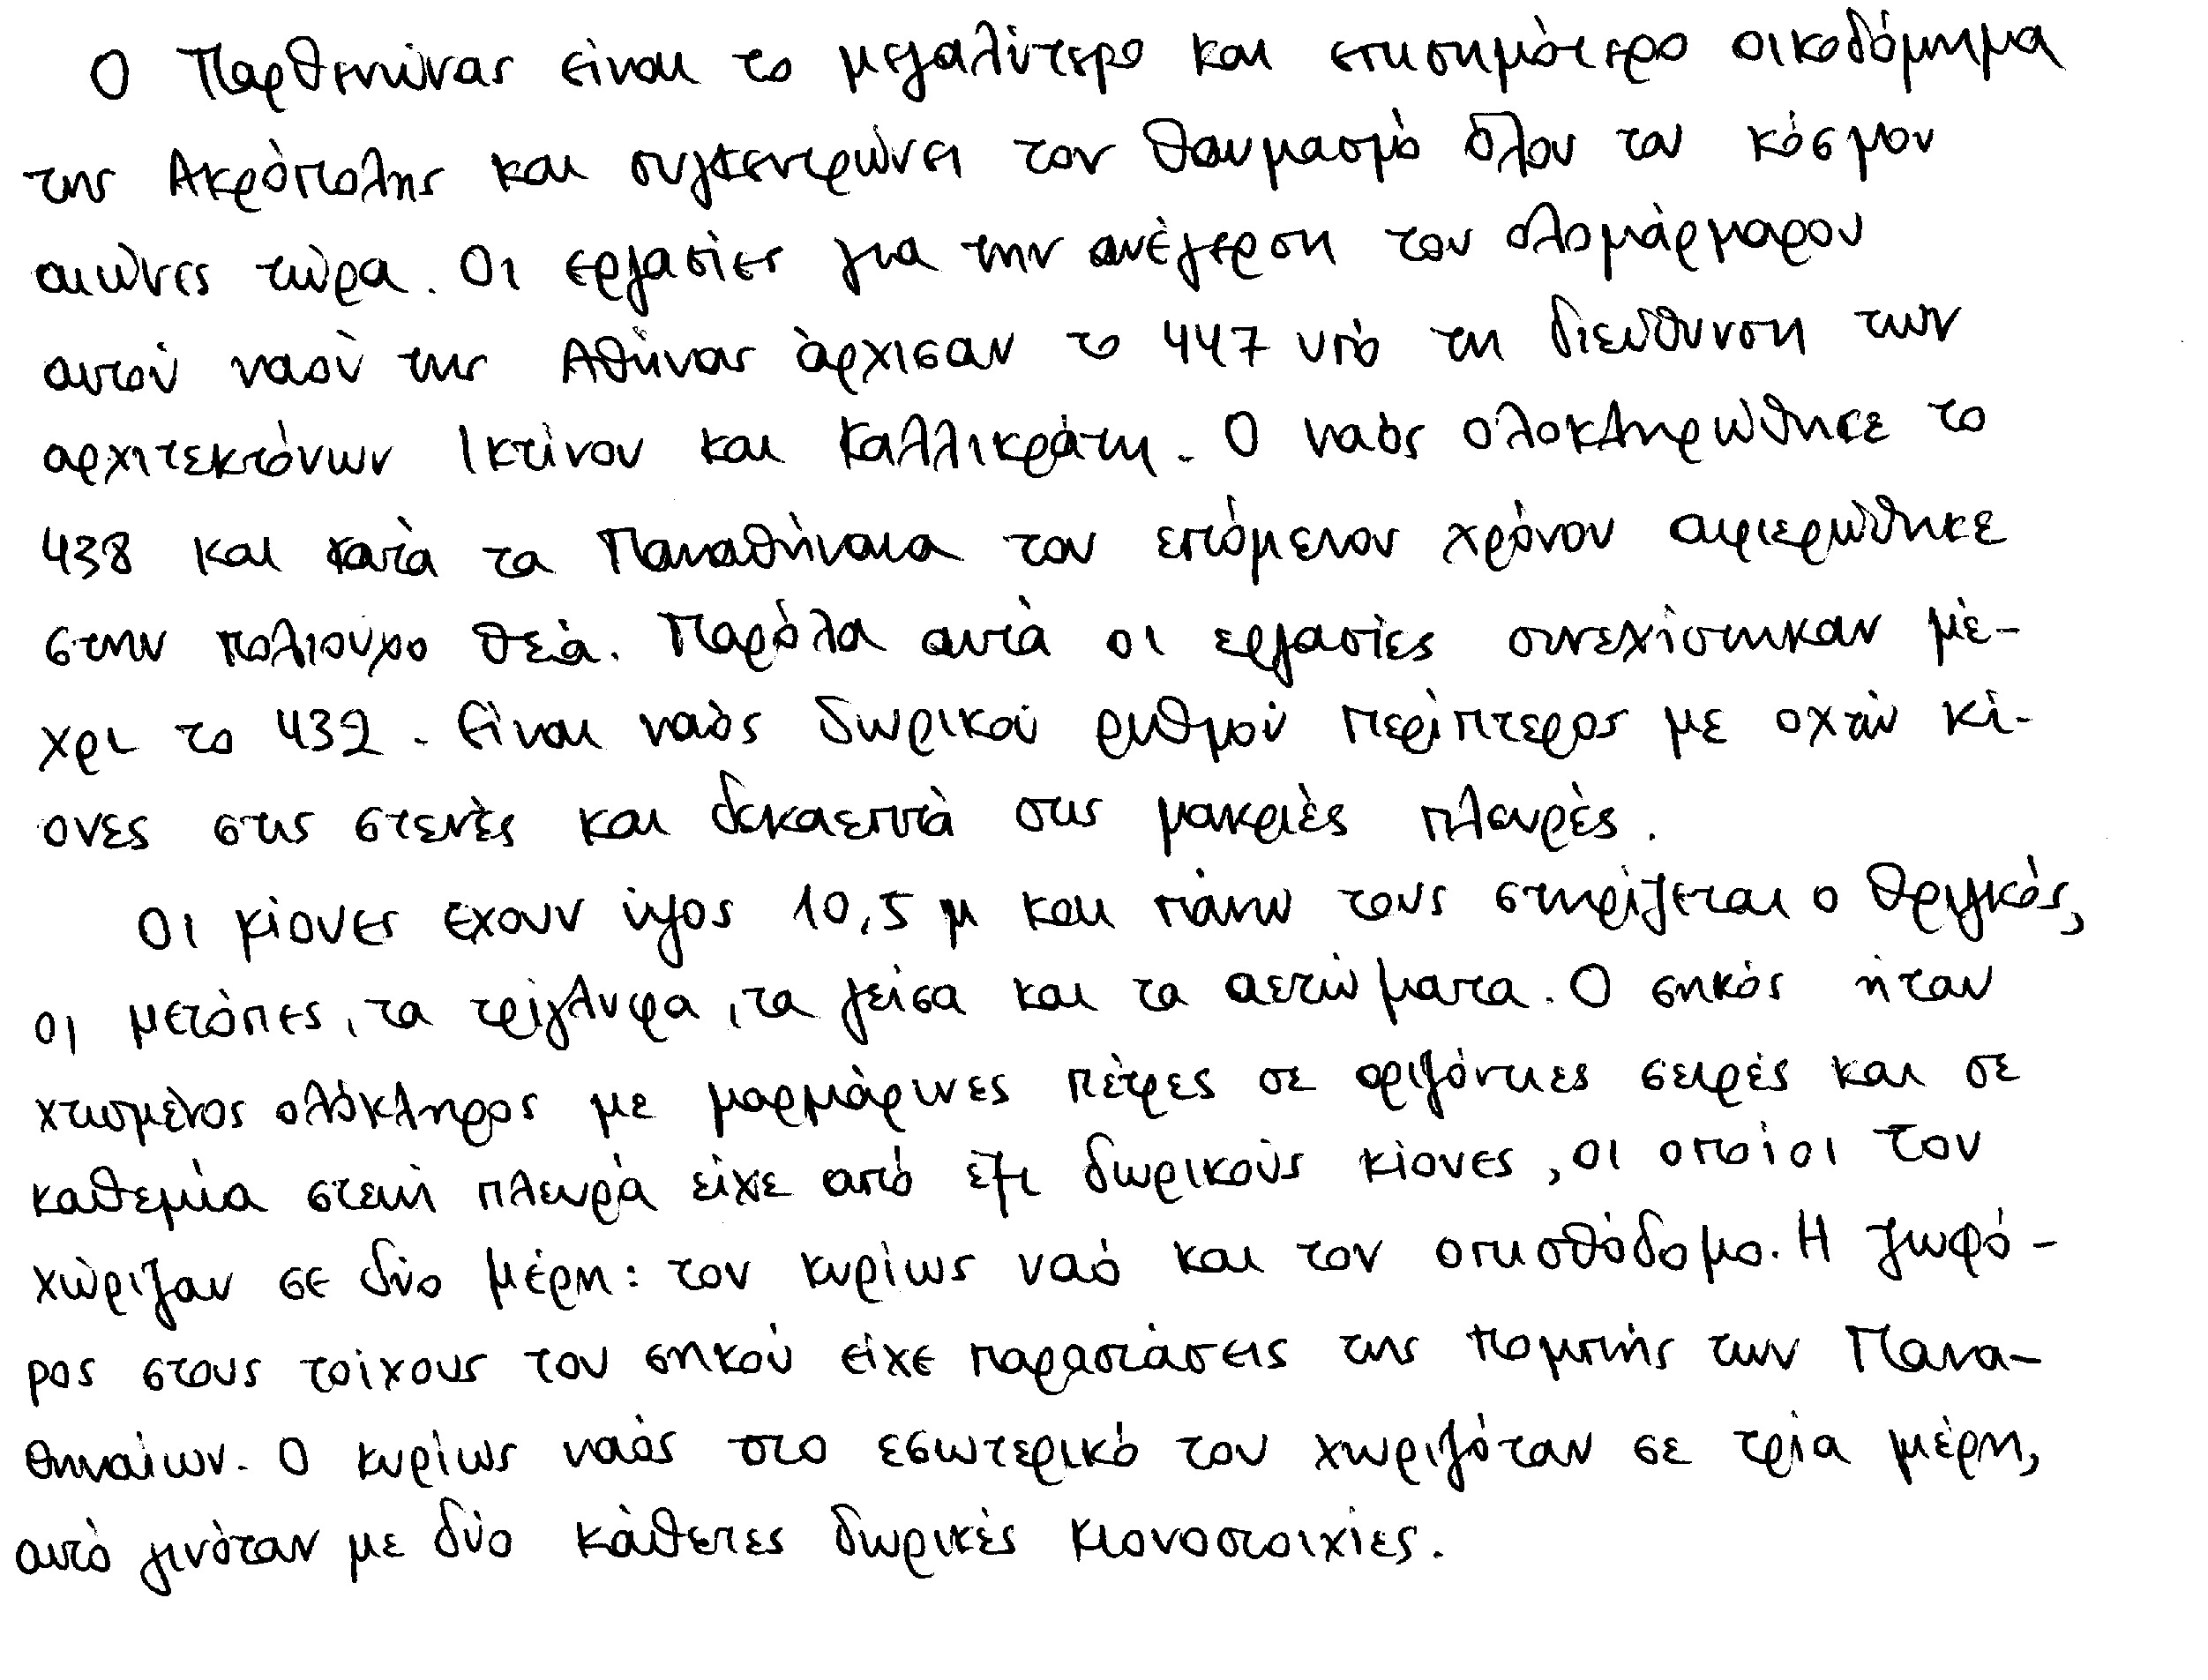 Ο Παρθενώνας είναι το μεγαλύτερο και επισημότερο οικοδόμημα
της Ακρόπολης και συγκεντρώνει τον θαυμασμό όλου του κόσμου
αιώνες τώρα. Οι εργασίες για την ανέγερση του ολομάρμαρου
αυτού ναού της Αθήνας άρχισαν το 447 υπό τη διεύθυνση των
αρχιτεκτόνων Ικτίνου και Καλλικράτη. Ο ναός ολοκληρώθηκε το
438 και κατά τα Παναθήναια του επόμενου χρόνου αφιερώθηκε
στην πολιούχο θεά. Παρόλα αυτά οι εργασίες συνεχίστηκαν μέ-
χρι το 432. Είναι ναός δωρικού ρυθμού περίπτερος με οχτώ κί-
ονες στις στενές και δεκαεπτά στις μακριές πλευρές.
Οι κίονες έχουν ύψος 10,5 μ και πάνω τους στηρίζεται ο θριγκός,
οι μετόπες, τα τρίγλυφα, τα γείσα και τα αετώματα. Ο σηκός ήταν
χτισμένος ολόκληρος με μαρμάρινες πέτρες σε οριζόντιες σειρές και σε
καθεμία στενή πλευρά είχε από έξι δωρικούς κίονες, οι οποίοι τον
χώριζαν σε δύο μέρη: τον κυρίως ναό και τον οπισθόδομο. Η ζωφό-
ρος στους τοίχους του σηκού είχε παραστάσεις της πομπής των Πανα-
θηναίων. Ο κυρίως ναός στο εσωτερικό του χωριζόταν σε τρία μέρη,
αυτό γινόταν με δύο κάθετες δωρικές κιονοστοιχίες.